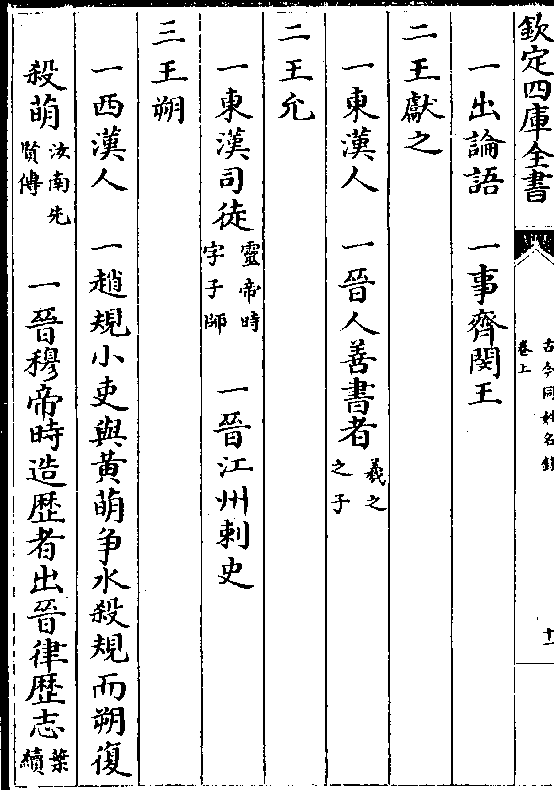 欽定四庫全書
古今同姓名錄
卷上
十一
一出論語 一事齊閔王
二王獻之
一東漢人 一晉人善書者羲之之子
二王允
一東漢司徒靈帝時字子師 一晉江州刺史
三王朔
一西漢人 一趙規小吏與黃萌爭水殺規而朔復
殺萌汝南先賢傳 一晉穆帝時造歷者出晉律歷志葉續